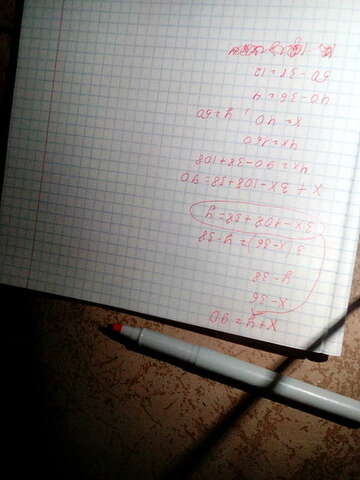 x+y=90
x-36
y-38
3(x-36)=y-38
3x-108+38=y
x+3x-108+38=90
4x=90-38+108
4x=160
x=40, y=50
40-36=4
50-38=12